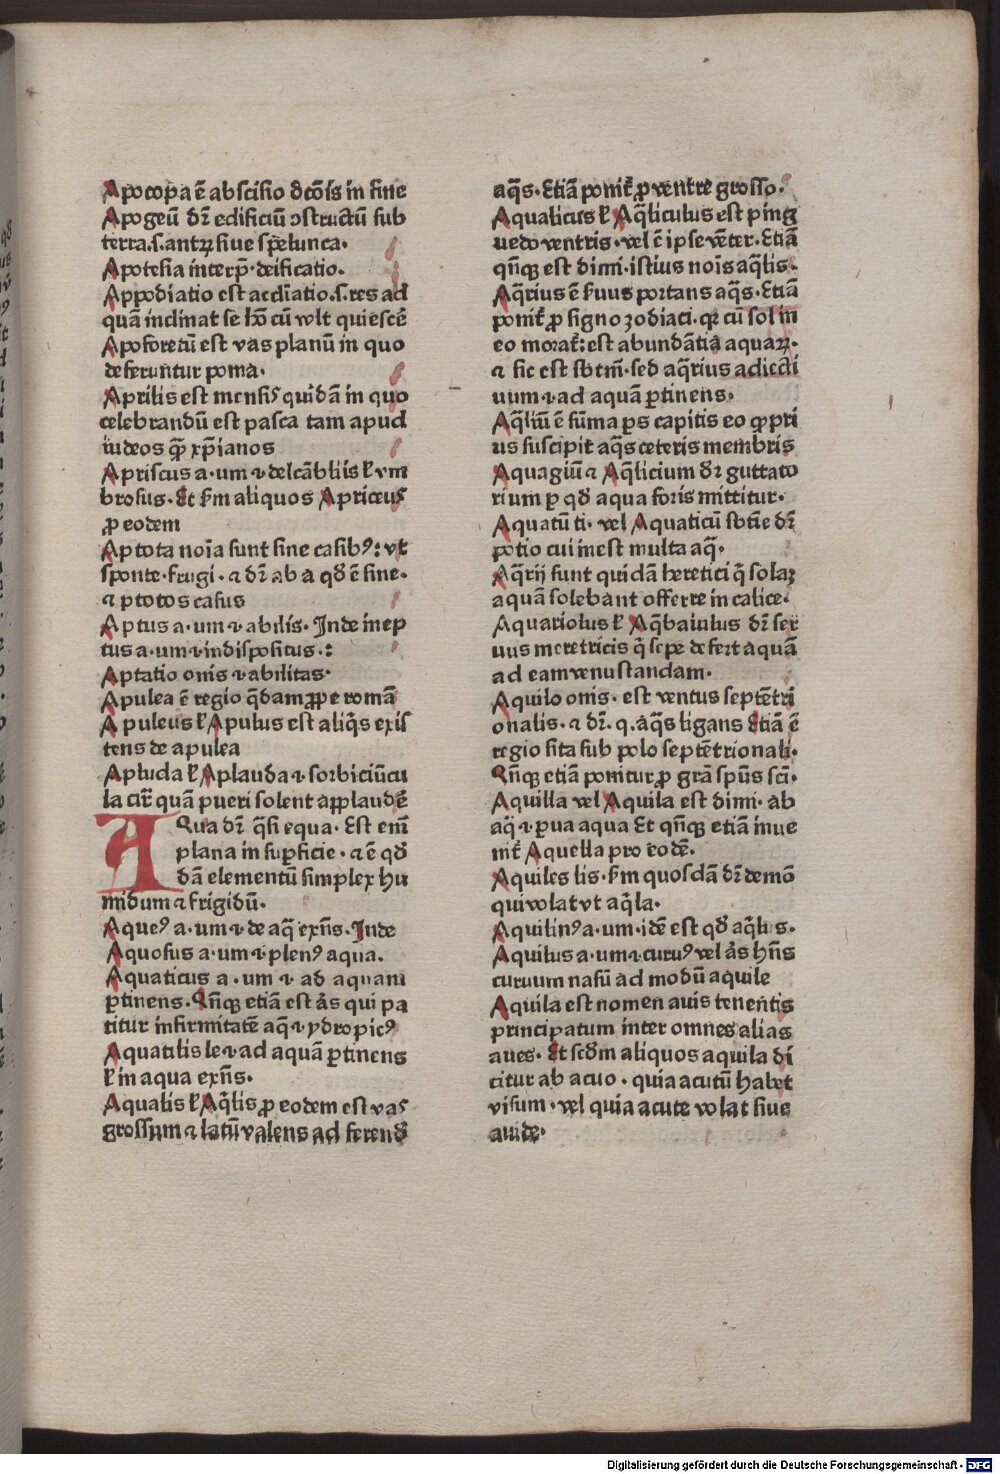 Apocopa ē abscisio dc̄ōis in fine
Apogeū dr̄ edificiū ↄstructū sub
terra.s.antꝝ siue spelunca.
Apotesia interp̄. deificatio.
Appodiatio est acclīatio.s.res ad
quam inclinat se hō cū vult quiescē
Apoforetū est vas planū in quo
deferuntur poma.
Aprilis est mensis quidā in quo
celebrandū est pasca tam apud
iudeos qm̄ xp̄ianos
Apriscus a.um.i.delcābilis l̄ vm
brosus. Et s̄m aliquos Apriceus
ꝓ eodem
Aptota noīa sunt sine casibꝰ: vt
sponte.frugi. ⁊ dr̄ ab a qd̄ ē sine.
⁊ ptotos casus
Aptus a.um.i.abilis. Inde inep
tus a.um.i.indispositus.:
Aptatio onis.i.abilitas.
Apulea ē regio q̄dam ꝓpe romā
Apuleus l̄ Apulus est aliq̄s exis
tens de apulea
Apluda l̄ Aplauda.i.sorbiciūcu
la cir̄ quam pueri solent applaudē
AQua dr̄ q̄si equa. Est em̄
plana in suꝑficie. ⁊ ē qd̄
dā elementū simplex hu
midum ⁊ frigidū.
Aqueꝰ a.um.i.de aq̄ exn̄s. Inde
Aquosus a.um.i.plenꝰ aqua.
Aquaticus a.um.i.ad aquam
ꝑtinens. Qn̄qꝫ etiā est ās qui pa
titur infirmitatē aq̄.i.ydropicꝰ
Aquatilis le.i.ad aquā ꝑtinens
l̄ in aqua exn̄s.
Aqualis l̄ Aq̄lis ꝓ eodem est vas
grossum ⁊ latū valens ad ferend̄
aq̄s. Etiā ponit̄ ꝓ ventre grosso.
Aqualicus l̄ Aq̄liculus est ping
uedo ventris. vel ē ipse vēter. Etiā
qn̄qꝫ est dimi. istius nois aq̄lis.
Aq̄rius ē s̄uus portans aq̄s. Etiā
ponit̄ ꝓ signo zodiaci. qꝛ cū sol in
eo morat̄: est abundātia aquaꝝ.
⁊ sic est sbtm̄. sed aq̄rius adiecti
uum.i.ad aquā ꝑtinens.
Aq̄liū ē sūma ꝑs capitis eo ꝙ pri
us suscipit aq̄s ceteris membris
Aquagiū ⁊ Aq̄licium dr̄ guttato
rium ꝑ qd̄ aqua foris mittitur.
Aquatū ti. vel Aquaticū sbtīe dr̄
potio cui inest multa aq̄.
Aq̄rij sunt quidā heretici q̄ solaꝫ
aquā solebant offerre in calice.
Aquariolus l̄ Aq̄baiulus dr̄ ser
uus meretricis q̄ sepe defert aquā
ad eam venustandam.
Aquilo onis. est ventus septētri
onalis. ⁊ dr̄. q. aq̄s ligans Etiā ē
regio sita sub polo septētrionali.
Qn̄qꝫ etiam ponitur ꝓ grā spūs sc̄i.
Aquilla vel Aquila est dimi. ab
aq̄.i.ꝑua aqua Et qn̄qꝫ etiā inue
nit̄ Aquella pro eodē.
Aquiles lis. s̄m quosdā dr̄ demō
qui volat vt aq̄la.
Aquilinꝰ a.um.idē est qd̄ aq̄lus.
Aquilus a.um.i.curuꝰ vel ās hn̄s
curuum nasū ad modū aquile
Aquila est nomen auis tenentis
principatum inter omnes alias
aues. Et scd̄m aliquos aquila di
citur ab acuo. quia acutū habet
visum. vel quia acute volat siue
auide.
Digitalisierung gefördert durch die Deutsche Forschungsgemeinschaft - DFG